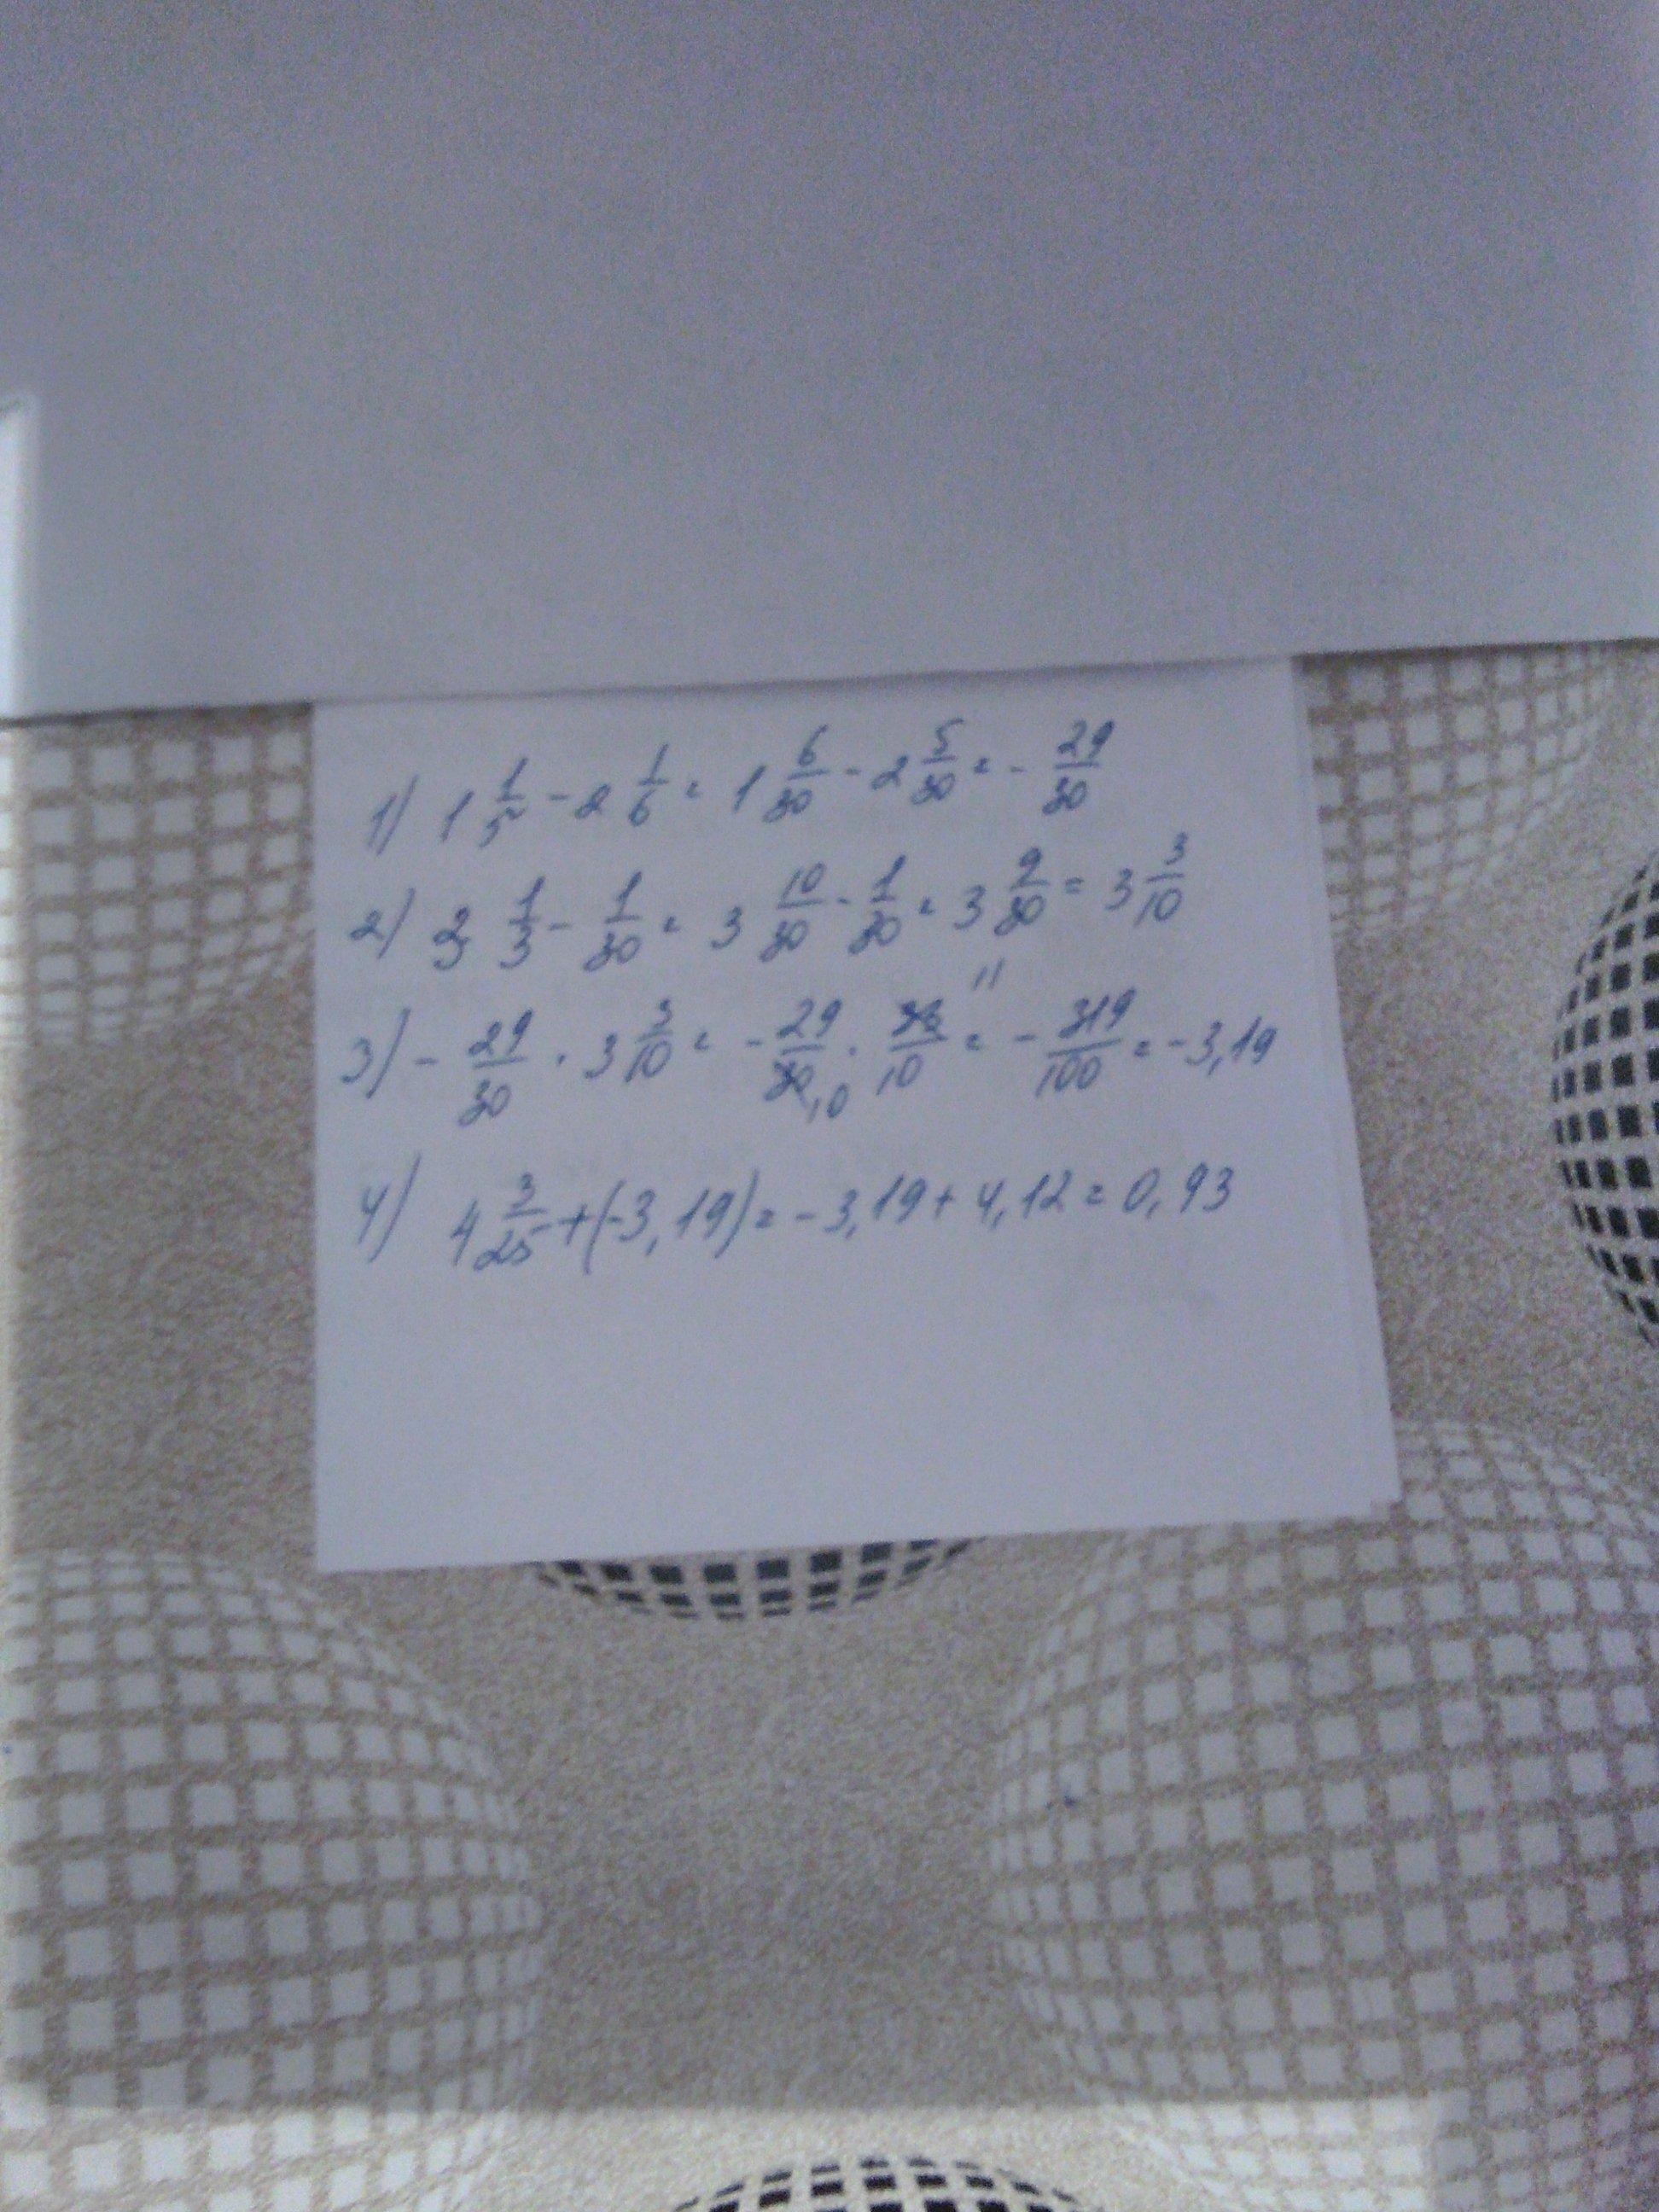 1) 1 1/5 - 2 1/6 = 1 6/30 - 2 5/30 = - 29/30
2) 3 1/3 - 1/30 = 3 10/30 - 1/30 = 3 9/30 = 3 3/10
3) - 29/30 · 3 3/10 = - 29/30 10 · 33/10 11 = - 319/100 = -3,19
4) 4 3/25 + (-3,19) = -3,19 + 4,12 = 0,93